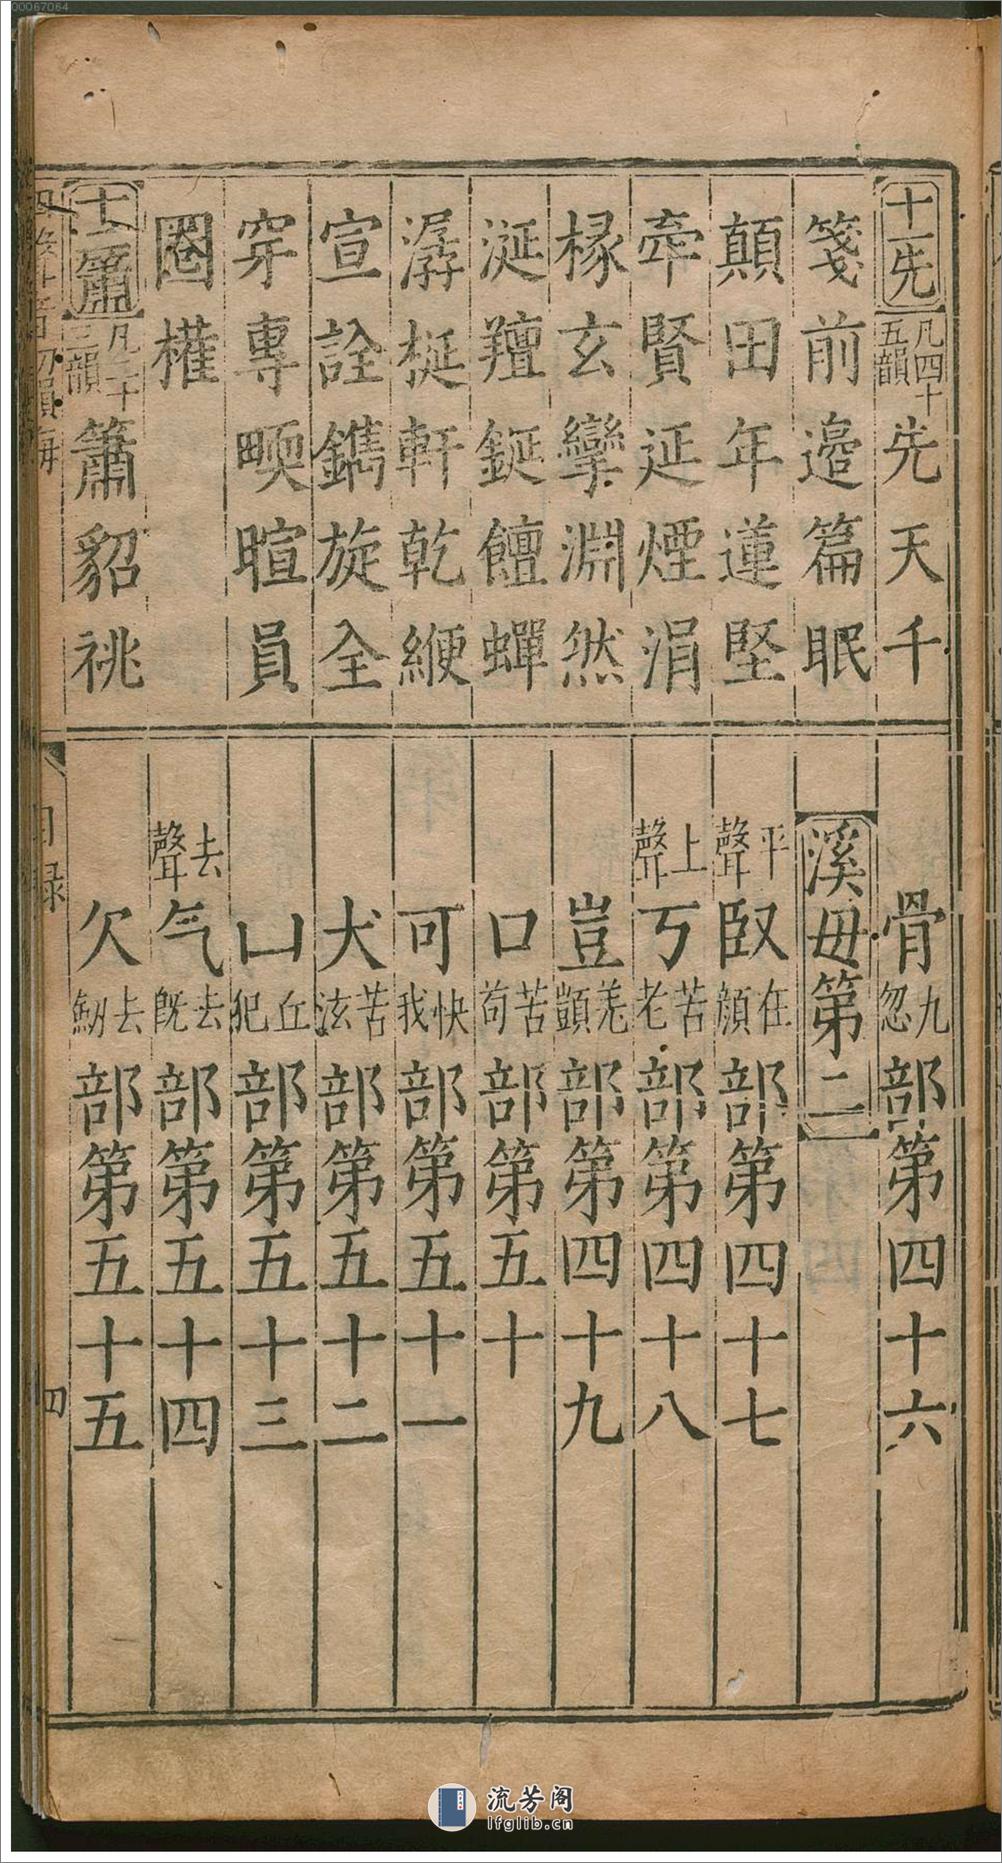 00067064
十一先 凡四十五韻 先天千
箋前邉篇眠
顛田年蓮堅
牽賢延煙涓
椽玄攣淵然
涎羶鋋饘蟬
潺梴軒乾緶
宣詮鐫旋全
穿專暎暄員
圈權
十二簫 凡三十三韻 簫貂祧
骨 九忽 部第四十六
溪毋第二
平聲 臤 在顔 部第四十七
上聲 丂 苦老 部第四十八
豈 羌顗 部第四十九
口 苦苟 部第五十
可 快我 部第五十一
犬 苦泫 部第五十二
凵 丘犯 部第五十三
去聲 气 去既 部第五十四
欠 去劒 部第五十五
目録
四
流芳阁
lfglib.cn